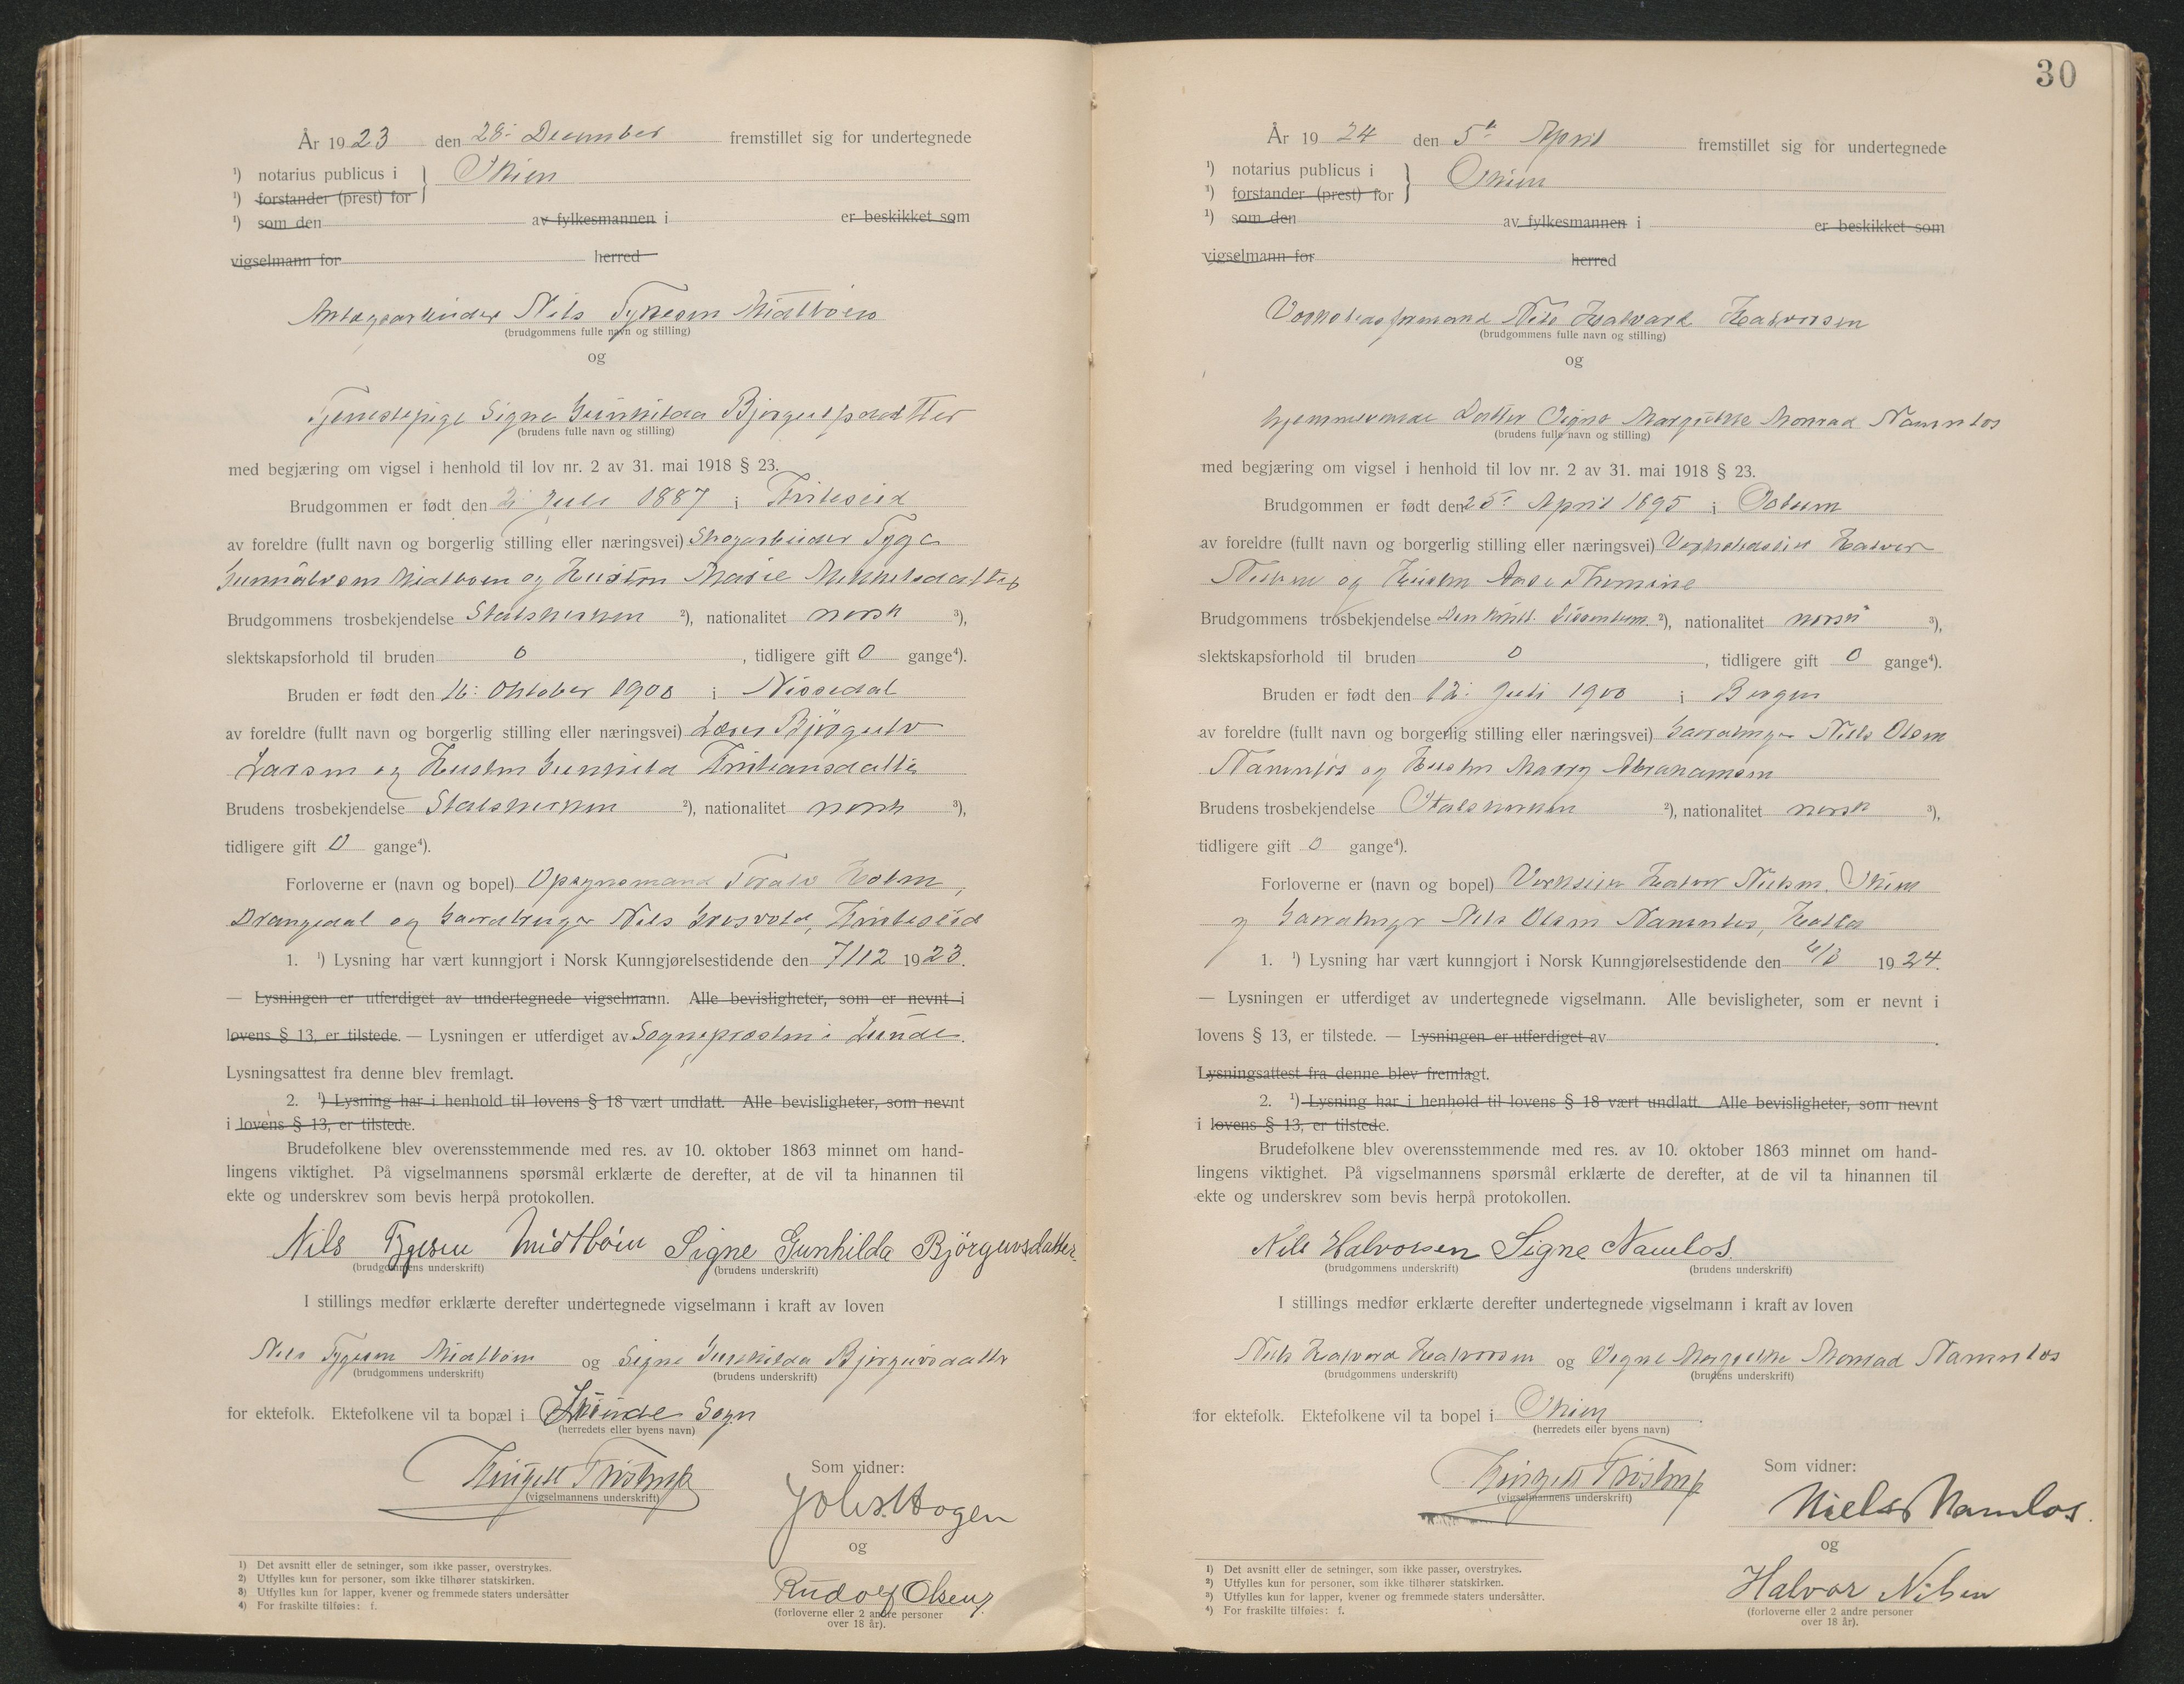 År 1923 den 28. December fremstillet sig for undertegnede
¹) notarius publicus i } Skien
¹) forstander (prest) for
¹) som den av fylkesmannen i er beskikket som
vigselmann for herred
Anlægsarbeider Nils Tygesen Midtbøen
(brudgommens fulle navn og stilling)
og
Tjenestepige Signe Gunhilda Bjørgulfsdatter
(brudens fulle navn og stilling)
med begjæring om vigsel i henhold til lov nr. 2 av 31. mai 1918 § 23.
Brudgommen er født den 2. Juli 1887 i Kviteseid
av foreldre (fullt navn og borgerlig stilling eller næringsvei) Skogarbeider Tyge
Gunnulvsen Midtbøen og Hustru Marie Mikkelsdatter
Brudgommens trosbekjendelse Statskirken ²), nationalitet norsk ³),
slektskapsforhold til bruden 0, tidligere gift 0 gange⁴).
Bruden er født den 16. Oktober 1900 i Nissedal
av foreldre (fullt navn og borgerlig stilling eller næringsvei) Lærer Bjørgulv
Larsen og Hustru Gunhild Kristiansdatter
Brudens trosbekjendelse Statskirken ²), nationalitet norsk ³),
tidligere gift 0 gange⁴).
Forloverne er (navn og bopel) Opsynsmand Toralv Holm,
Drangedal og Gaardbruger Nils Grosvold, Kviteseid
1. ¹) Lysning har vært kunngjort i Norsk Kunngjørelsestidende den 7/12 1923.
— Lysningen er utferdiget av undertegnede vigselmann. Alle bevisligheter, som er nevnt i
lovens § 13, er tilstede. — Lysningen er utferdiget av Sognepresten i Lunde.
Lysningsattest fra denne blev fremlagt.
2. ¹) Lysning har i henhold til lovens § 18 vært undlatt. Alle bevisligheter, som nevnt
i lovens § 13, er tilstede.
Brudefolkene blev overensstemmende med res. av 10. oktober 1863 minnet om hand-
lingens viktighet. På vigselmannens spørsmål erklærte de derefter, at de vil ta hinannen til
ekte og underskrev som bevis herpå protokollen.
Nils Tygesen Midtbøen Signe Gunhilda Björguvsdatter
(brudgommens underskrift) (brudens underskrift)
I stillings medfør erklærte derefter undertegnede vigselmann i kraft av loven
Nils Tygesen Midtbøen og Signe Gunhilda Bjørgulvsdatter
(brudgommens underskrift) (brudens underskrift)
for ektefolk. Ektefolkene vil ta bopæl i Lunde Sogn
(herredets eller byens navn)
(vigselmannens underskrift)
Som vidner:
Johs. Hogen
og
Rudolf Olsen
(forloverne eller 2 andre personer
over 18 år).
¹) Det avsnitt eller de setninger, som ikke passer, overstrykes.
²) Utfylles kun for personer, som ikke tilhører statskirken.
³) Utfylles kun for lapper, kvener og fremmede staters undersåtter
⁴) For fraskilte tilføies: f.
30
År 1924 den 5te April fremstillet sig for undertegnede
¹) notarius publicus i } Skien
¹) forstander (prest) for
¹) som den av fylkesmannen i er beskikket som
vigselmann for herred
Verkstedsformand Nils Halvard Halvorsen
(brudgommens fulle navn og stilling)
og
hjemmeværende Datter Signe Margrethe Monrad Namnlos
(brudens fulle navn og stilling)
med begjæring om vigsel i henhold til lov nr. 2 av 31. mai 1918 § 23.
Brudgommen er født den 25. April 1895 i Solum
av foreldre (fullt navn og borgerlig stilling eller næringsvei) Halvor
Nielsen og Hustru Thomine
Brudgommens trosbekjendelse Den kristl. Dissenterm. ²), nationalitet norsk ³),
slektskapsforhold til bruden 0, tidligere gift 0 gange⁴).
Bruden er født den 12. Juli 1900 i Bergen
av foreldre (fullt navn og borgerlig stilling eller næringsvei) Gaardbruger Niels Olsen
Namnløs og Hustru Marry Abrahamsen
Brudens trosbekjendelse Statskirken ²), nationalitet norsk ³),
tidligere gift 0 gange⁴).
Forloverne er (navn og bopel) Verkseier Halvor Nielsen, Skien
og Gaardbruger Nils Olsen Namnlos, Holla
1. ¹) Lysning har vært kunngjort i Norsk Kunngjørelsestidende den /3 1924.
— Lysningen er utferdiget av undertegnede vigselmann. Alle bevisligheter, som er nevnt i
lovens § 13, er tilstede. — Lysningen er utferdiget av .
Lysningsattest fra denne blev fremlagt.
2. ¹) Lysning har i henhold til lovens § 18 vært undlatt. Alle bevisligheter, som nevnt
i lovens § 13, er tilstede.
Brudefolkene blev overensstemmende med res. av 10. oktober 1863 minnet om hand-
lingens viktighet. På vigselmannens spørsmål erklærte de derefter, at de vil ta hinannen til
ekte og underskrev som bevis herpå protokollen.
Nils Halvorsen Signe Namlos
(brudgommens underskrift) (brudens underskrift)
I stillings medfør erklærte derefter undertegnede vigselmann i kraft av loven
Nils Halvard Halvorsen og Signe Margrethe Monrad Namnlos
(brudgommens underskrift) (brudens underskrift)
for ektefolk. Ektefolkene vil ta bopel i Skien.
(herredets eller byens navn)
(vigselmannens underskrift)
Som vidner:
Niels Namlos.
og
Halvor Nilsen
(forloverne eller 2 andre personer
over 18 år).
¹) Det avsnitt eller de setninger, som ikke passer, overstrykes.
²) Utfylles kun for personer, som ikke tilhører statskirken.
³) Utfylles kun for lapper, kvener og fremmede staters undersåtter.
⁴) For fraskilte tilføies: f.